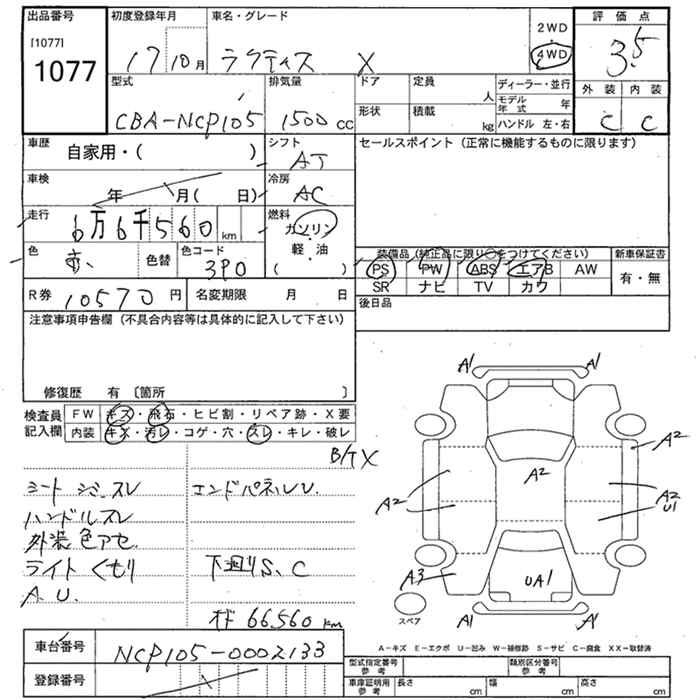 出品番号
[1077]
1077
初度登録年月
17 10月
車名・グレード
ラクティス X
2WD
4WD
評価点
3.5
外装 内装
C C
型式
CBA-NCP105
排気量
1500 CC
ドア 定員 人
形状 積載 kg
ディーラー・並行
モデル年式 年
ハンドル 左・右
車歴
自家用・( )
シフト
AT
セールスポイント (正常に機能するものに限ります)
車検
年 月( 日)
冷房
AC
走行
6万6千560 km
燃料
ガソリン・軽・油
( )
色
色替
色コード
3P0
装備品 (純正品に限り○をつけてください)
PS PW ABS エアB AW
SR ナビ TV カワ
新車保証書
有・無
R券 10570 円
名変期限 月 日
後日品
注意事項申告欄 (不具合内容等は具体的に記入して下さい)
修復歴 有 〔箇所 〕
検査員記入欄
FW キズ・飛石・ヒビ割・リペア跡・X要
内装 キズ・汚レ・コゲ・穴・スレ・キレ・破レ
シート シミ、スレ
エンドパネルU.
ハンドルスレ
外装 色アセ
ライト くもり
下廻りS、C
A.U.
66,560 km
A1 A1
A2
A2
A2
A2
A2
U1
A3
UA1
A1 A1
スペア
車台番号
NCP105-0002133
登録番号
A-キズ E-エクボ U-凹み W-補修跡 S-サビ C-腐食 XX-取替済
型式指定番号 参考
類別区分番号 参考
車庫証明用 参考
長さ cm
幅 cm
高さ cm